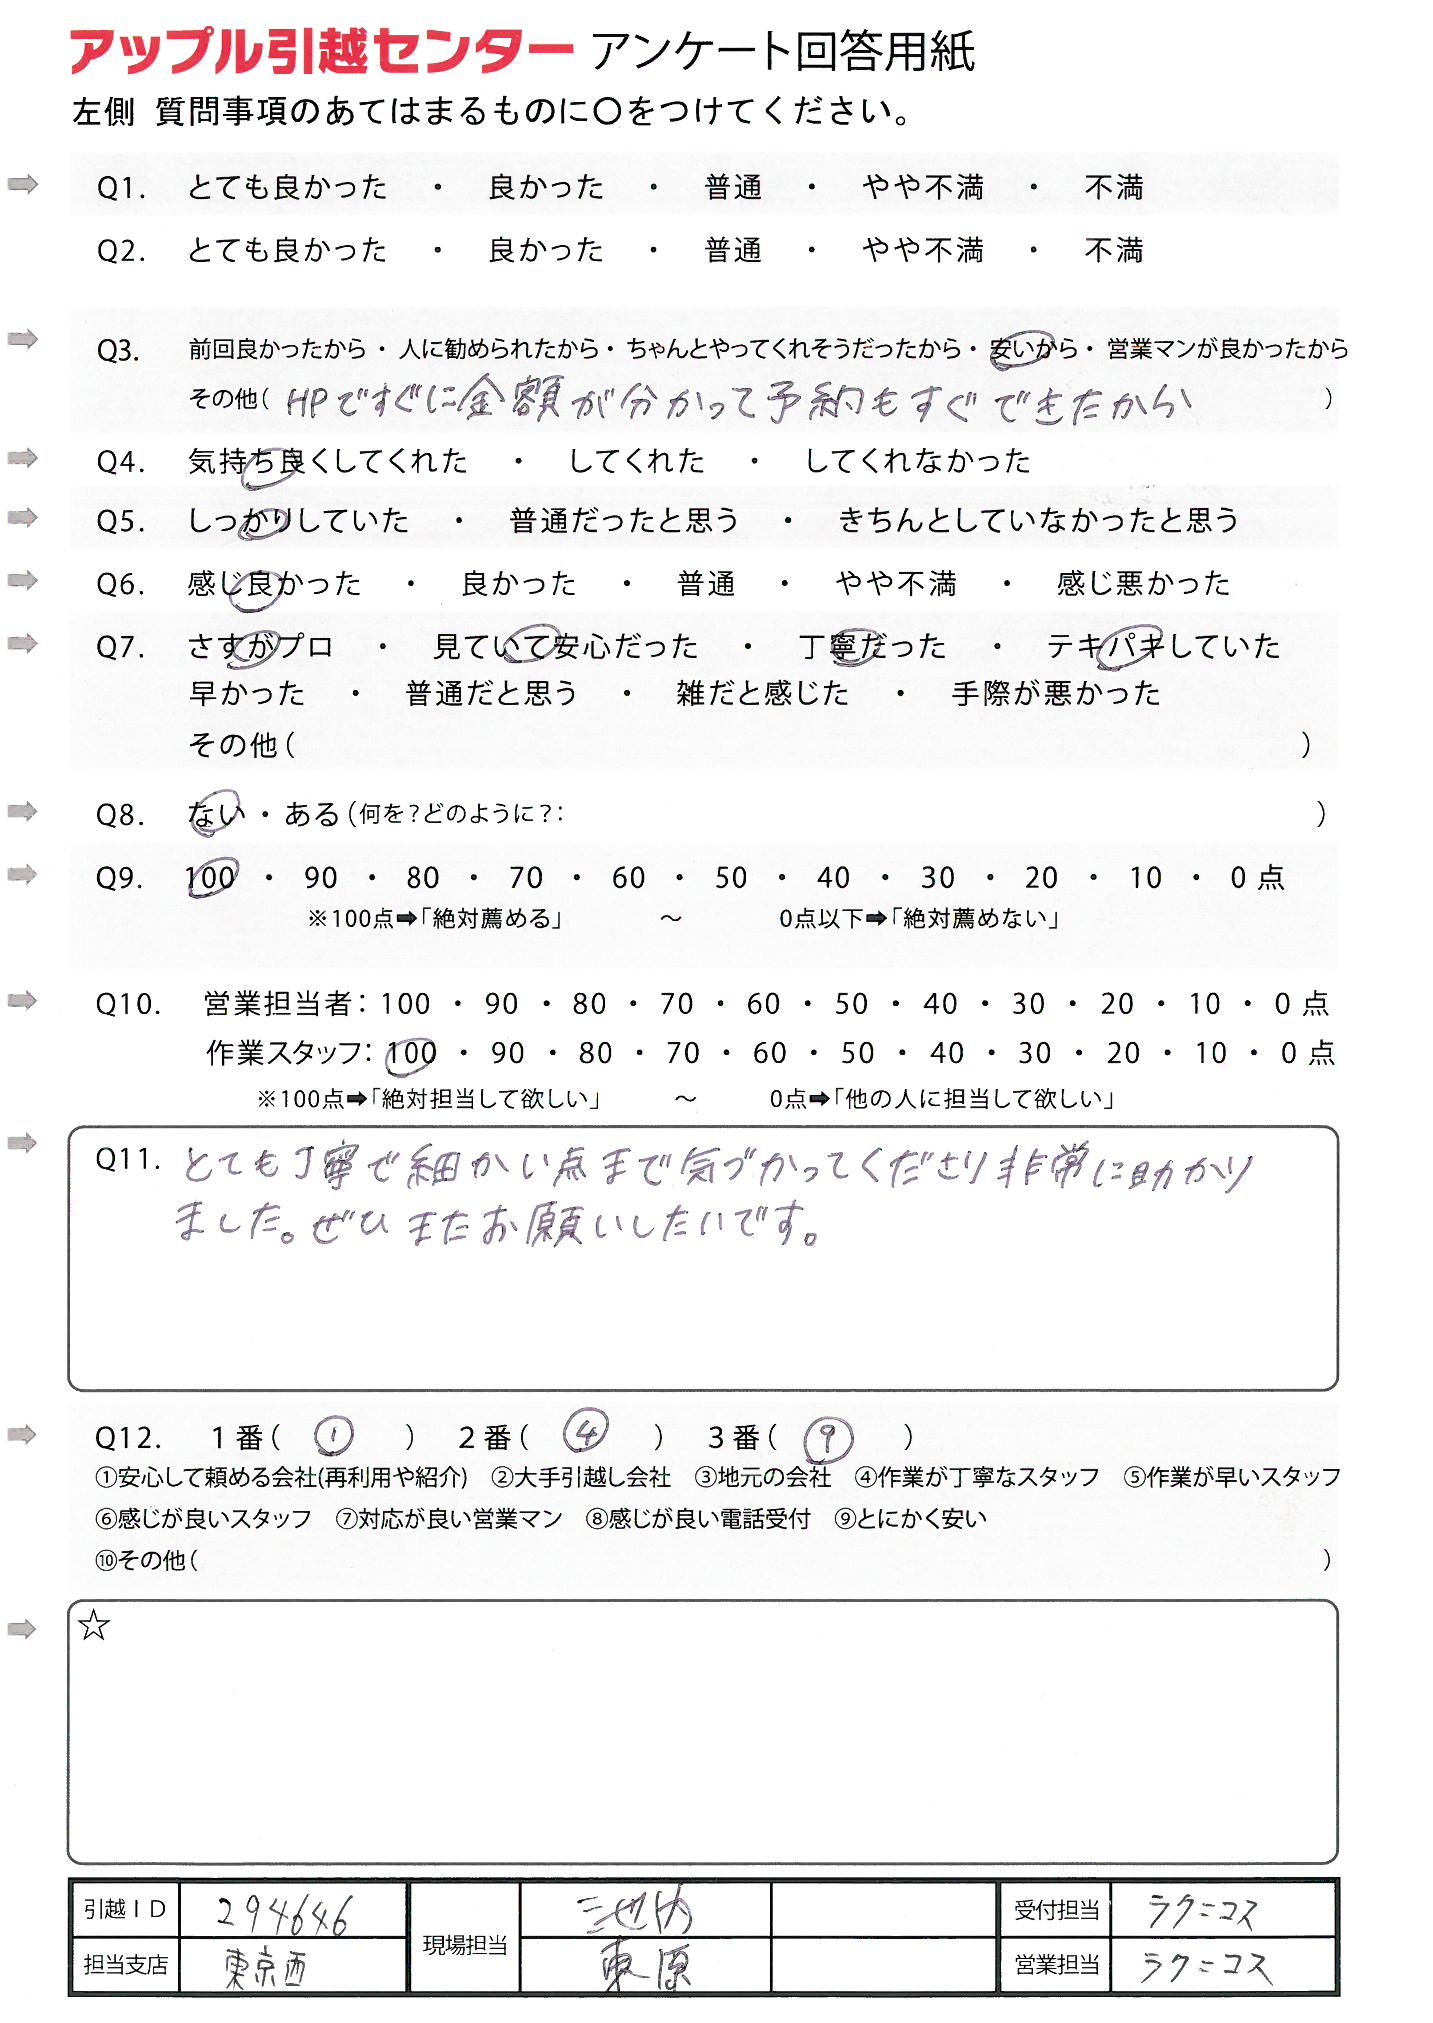 アップル引越センター アンケート回答用紙
左側 質問事項のあてはまるものに〇をつけてください。
Q1. とても良かった ・ 良かった ・ 普通 ・ やや不満 ・ 不満
Q2. とても良かった ・ 良かった ・ 普通 ・ やや不満 ・ 不満
Q3. 前回良かったから・ 人に勧められたから・ ちゃんとやってくれそうだったから・ 安いから・ 営業マンが良かったから
その他( HPですぐに金額が分かって予約もすぐできたから )
Q4. 気持ち良くしてくれた ・ してくれた ・ してくれなかった
Q5. しっかりしていた ・ 普通だったと思う ・ きちんとしていなかったと思う
Q6. 感じ良かった ・ 良かった ・ 普通 ・ やや不満 ・ 感じ悪かった
Q7. さすがプロ ・ 見ていて安心だった ・ 丁寧だった ・ テキパキしていた
早かった ・ 普通だと思う ・ 雑だと感じた ・ 手際が悪かった
その他( )
Q8. ない・ある(何を?どのように?: )
Q9. 100 ・ 90 ・ 80 ・ 70 ・ 60 ・ 50 ・ 40 ・ 30 ・ 20 ・ 10 ・ 0 点
※100点➡「絶対薦める」 ～ 0点以下➡「絶対薦めない」
Q10. 営業担当者: 100 ・ 90 ・ 80 ・ 70 ・ 60 ・ 50 ・ 40 ・ 30 ・ 20 ・ 10 ・ 0 点
作業スタッフ: 100 ・ 90 ・ 80 ・ 70 ・ 60 ・ 50 ・ 40 ・ 30 ・ 20 ・ 10 ・ 0 点
※100点➡「絶対担当して欲しい」 ～ 0点➡「他の人に担当して欲しい」
Q11. とても丁寧で細かい点まで気づかってくださり非常に助かり
ました。ぜひまたお願いしたいです。
Q12. 1番( ① ) 2番( ④ ) 3番( ⑨ )
①安心して頼める会社(再利用や紹介) ②大手引越し会社 ③地元の会社 ④作業が丁寧なスタッフ ⑤作業が早いスタッフ
⑥感じが良いスタッフ ⑦対応が良い営業マン ⑧感じが良い電話受付 ⑨とにかく安い
⑩その他( )
☆
引越ID 294646 現場担当 池内 受付担当 ラクニコス
担当支店 東京西 東原 営業担当 ラクニコス